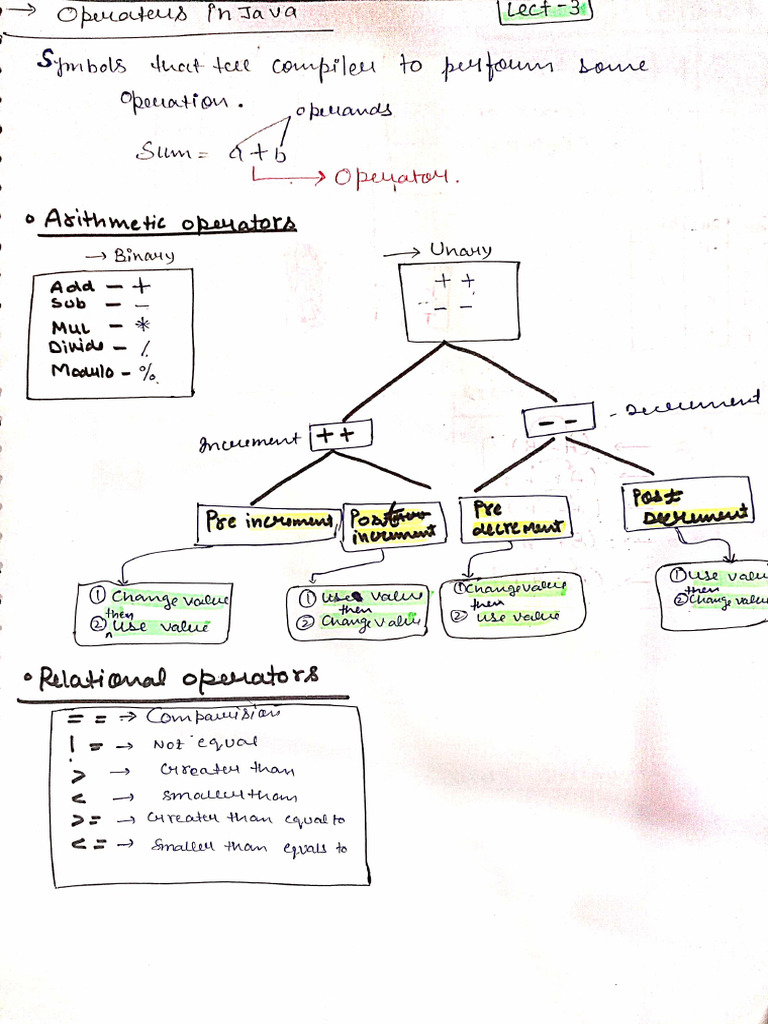 → Operators in Java
Lect-3
Symbols that tell compiler to perform some
operation.
operands
Sum = a + b
→ Operator.
• Arithmetic operators
→ Binary
Add - +
Sub - -
Mul - *
Divide - /.
Modulo - %
→ Unary
+ +
- -
Increment
++
--
- Decrement
Pre increment
Post
increment
Pre
decrement
Post
Decrement
① Change value
then
② use value
① Use value
then
② Change value
① Change value
then
② Use value
① Use value
then
② Change value
• Relational operators
== → Comparision
!= → Not equal
> → Greater than
< → Smaller than
>= → Greater than equal to
<= → Smaller than equals to